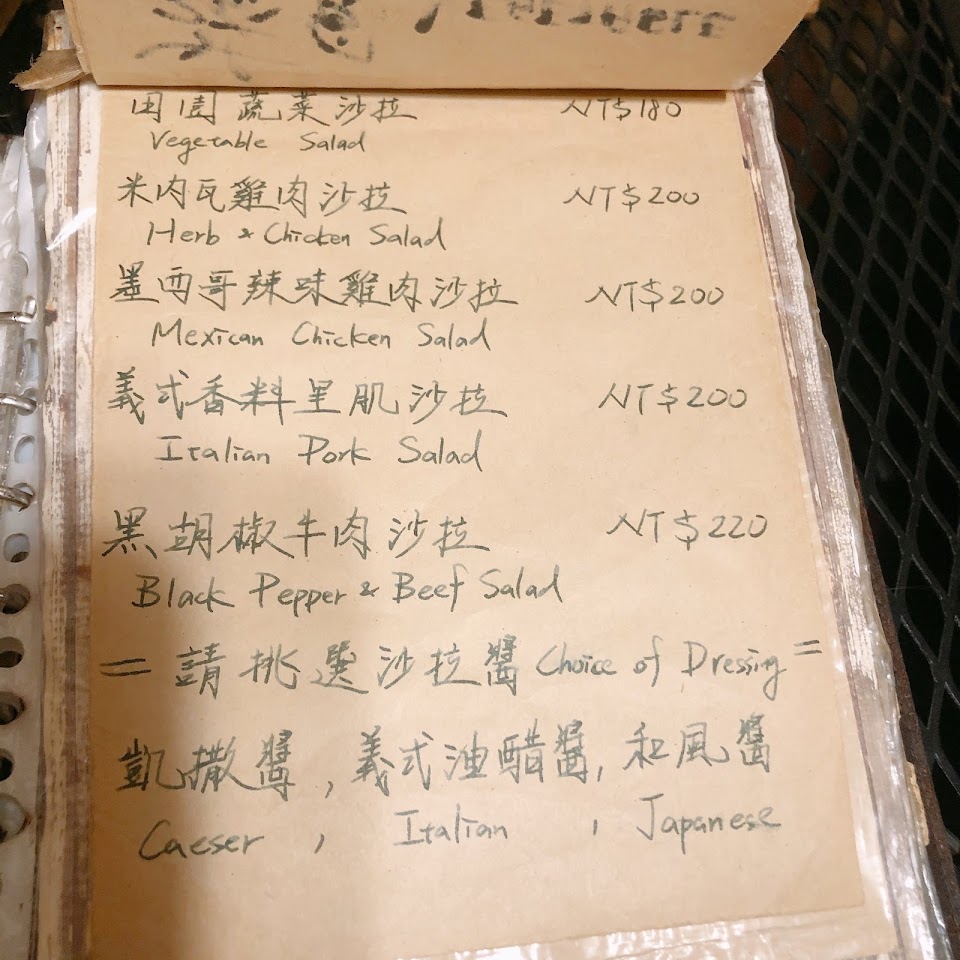 田園蔬菜沙拉 NT$180
Vegetable Salad
米肉瓦雞肉沙拉 NT$200
Herb & Chicken Salad
墨西哥辣味雞肉沙拉 NT$200
Mexican Chicken Salad
義式香料里肌沙拉 NT$200
Italian Pork Salad
黑胡椒牛肉沙拉 NT$220
Black Pepper & Beef Salad
=請挑選沙拉醬 Choice of Dressing=
凱撒醬,義式油醋醬,和風醬
Caeser , Italian , Japanese